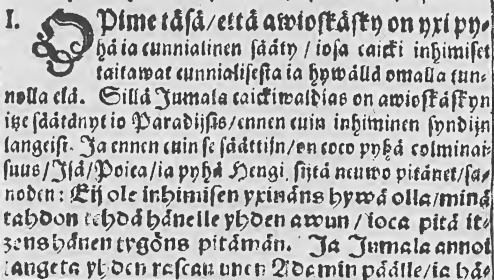 I. OPime täsä/että awioskäsky on yxi py-
hä ia cunnialinen sääty/iosa caicki inhimiset
taitawat cunnialisesta ia hywällä omalla tun-
nolla elä. Sillä Jumala caickiwaldias on awioskäskyn
itze säätänyt io Paradijsis/ennen cuin inhiminen syndijn
langeisi. Ja ennen cuin se säättijn/on coco pyhä colminai-
suus/Isä/Poica/ia pyhä Hengi, sijtä neuwo pitänet/sa-
noden: Eij ole inhimisen yxinäns hywä olla/minä
tahdon tehdä hänelle yhden awun/ioca pitä it-
zens hänen tygöns pitämän. Ja Jumala annoi
langeta yhden rascan unen Adamin päälle/ia hä-